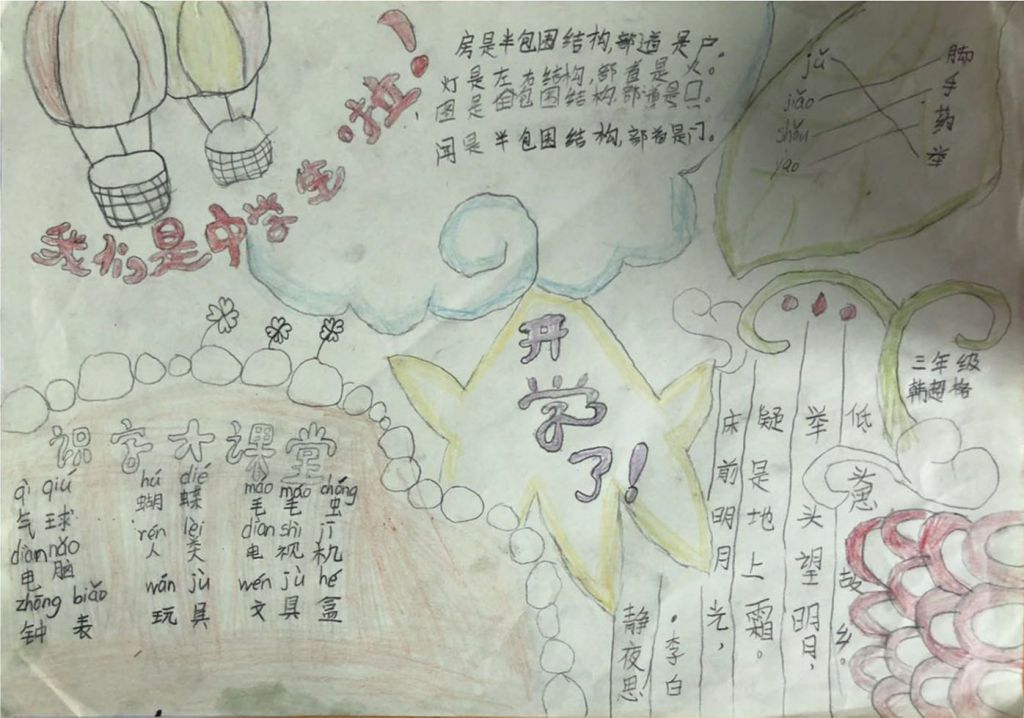 我们是中学生啦!
房是半包围结构,部道是户。
灯是左右结构,部首是火。
图是全包围结构,部道是口。
闻是半包围结构,部首是门。
jǔ 脚
jiǎo 手
shǒu 药
yào 举
开学了!
三年级
韩超格
识字大课堂
qì qiú hú dié máo máo chóng
气球 蝴蝶 毛毛虫
diàn nǎo rén lèi diàn shì jī
电脑 人类 电视机
zhōng biǎo wán jù wén jù hé
钟表 玩具 文具盒
静夜思
·李白
床前明月光,
疑是地上霜。
举头望明月,
低头思故乡。